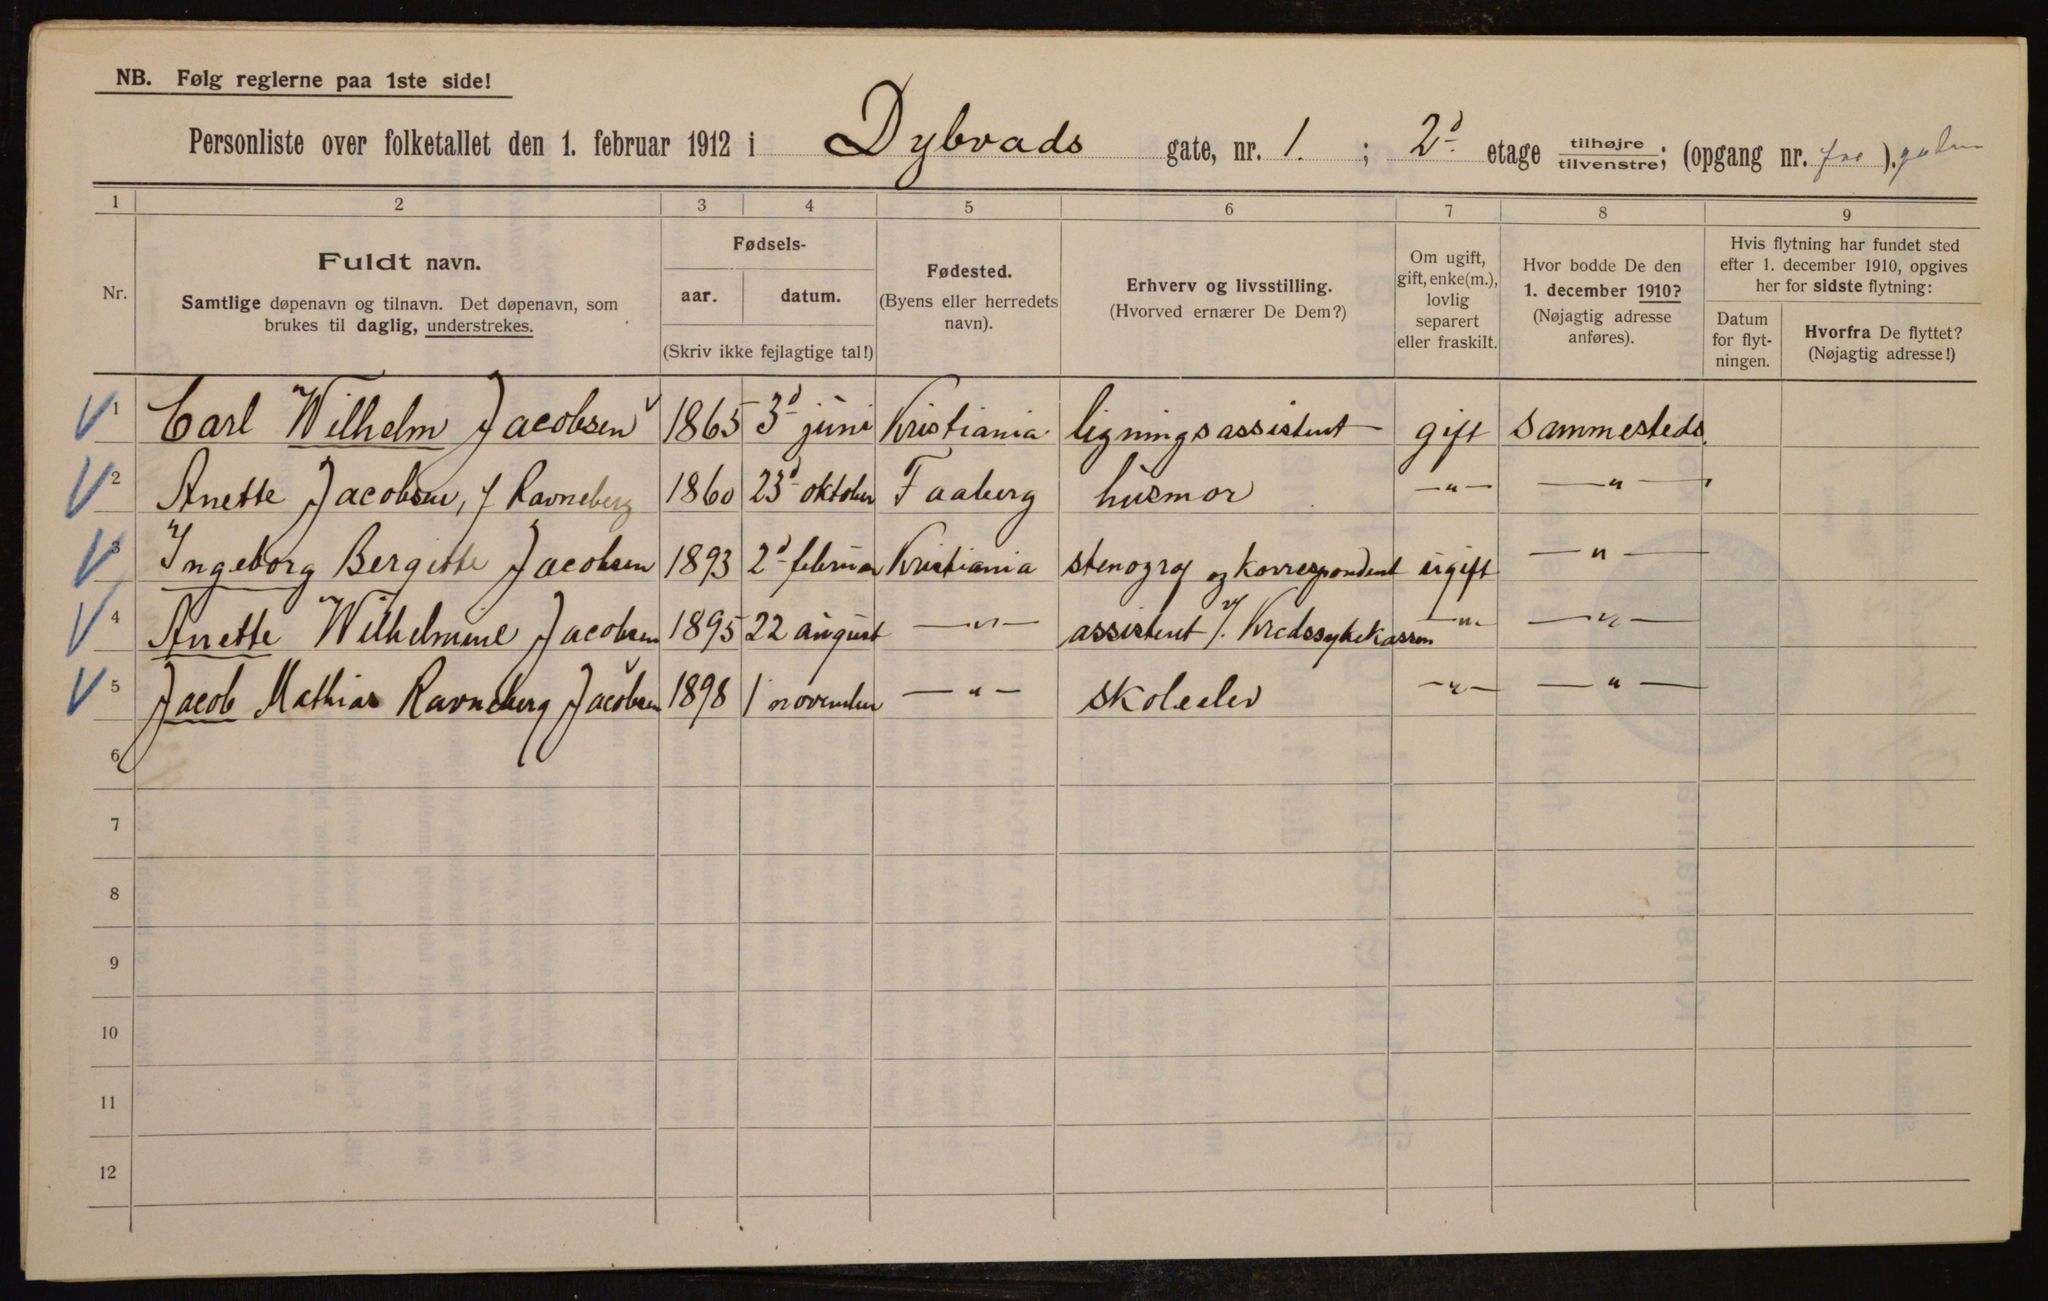 NB. Følg reglerne paa 1ste side!
Personliste over folketallet den 1. februar 1912 i Dybvads gate, nr. 1. ; 2d etage tilhøjre/tilvenstre; (opgang nr. fra ). gaden
1 2 3 4 5 6 7 8 9
Nr.
Fuldt navn.
Samtlige døpenavn og tilnavn. Det døpenavn, som
brukes til daglig, understrekes.
Fødsels-
aar. datum.
(Skriv ikke fejlagtige tal!)
Fødested.
(Byens eller herredets
navn).
Erhverv og livsstilling.
(Hvorved ernærer De Dem?)
Om ugift,
gift, enke(m.),
lovlig
separert
eller fraskilt.
Hvor bodde De den
1. december 1910?
(Nøjagtig adresse
anføres).
Hvis flytning har fundet sted
efter 1. december 1910, opgives
her for sidste flytning:
Datum
for flyt-
ningen.
Hvorfra De flyttet?
(Nøjagtig adresse!)
1 Carl Wilhelm Jacobsen 1865 3d juni Kristiania ligningsassistent gift sammesteds.
2 Anette Jacobsen, f Ravneberg 1860 23d oktober Faaberg husmor —"— —"—
3 Ingeborg Bergitte Jacobsen 1893 2d februar Kristiania stenograf og korrespondent ugift —"—
4 Anette Wilhelmine Jacobsen 1895 22 august —"— assistent v/. Kredssykekassen —"— —"—
5 Jacob Mathias Ravneberg Jacobsen 1898 1 november —"— skoleelev —"— —"—
6
7
8
9
10
11
12